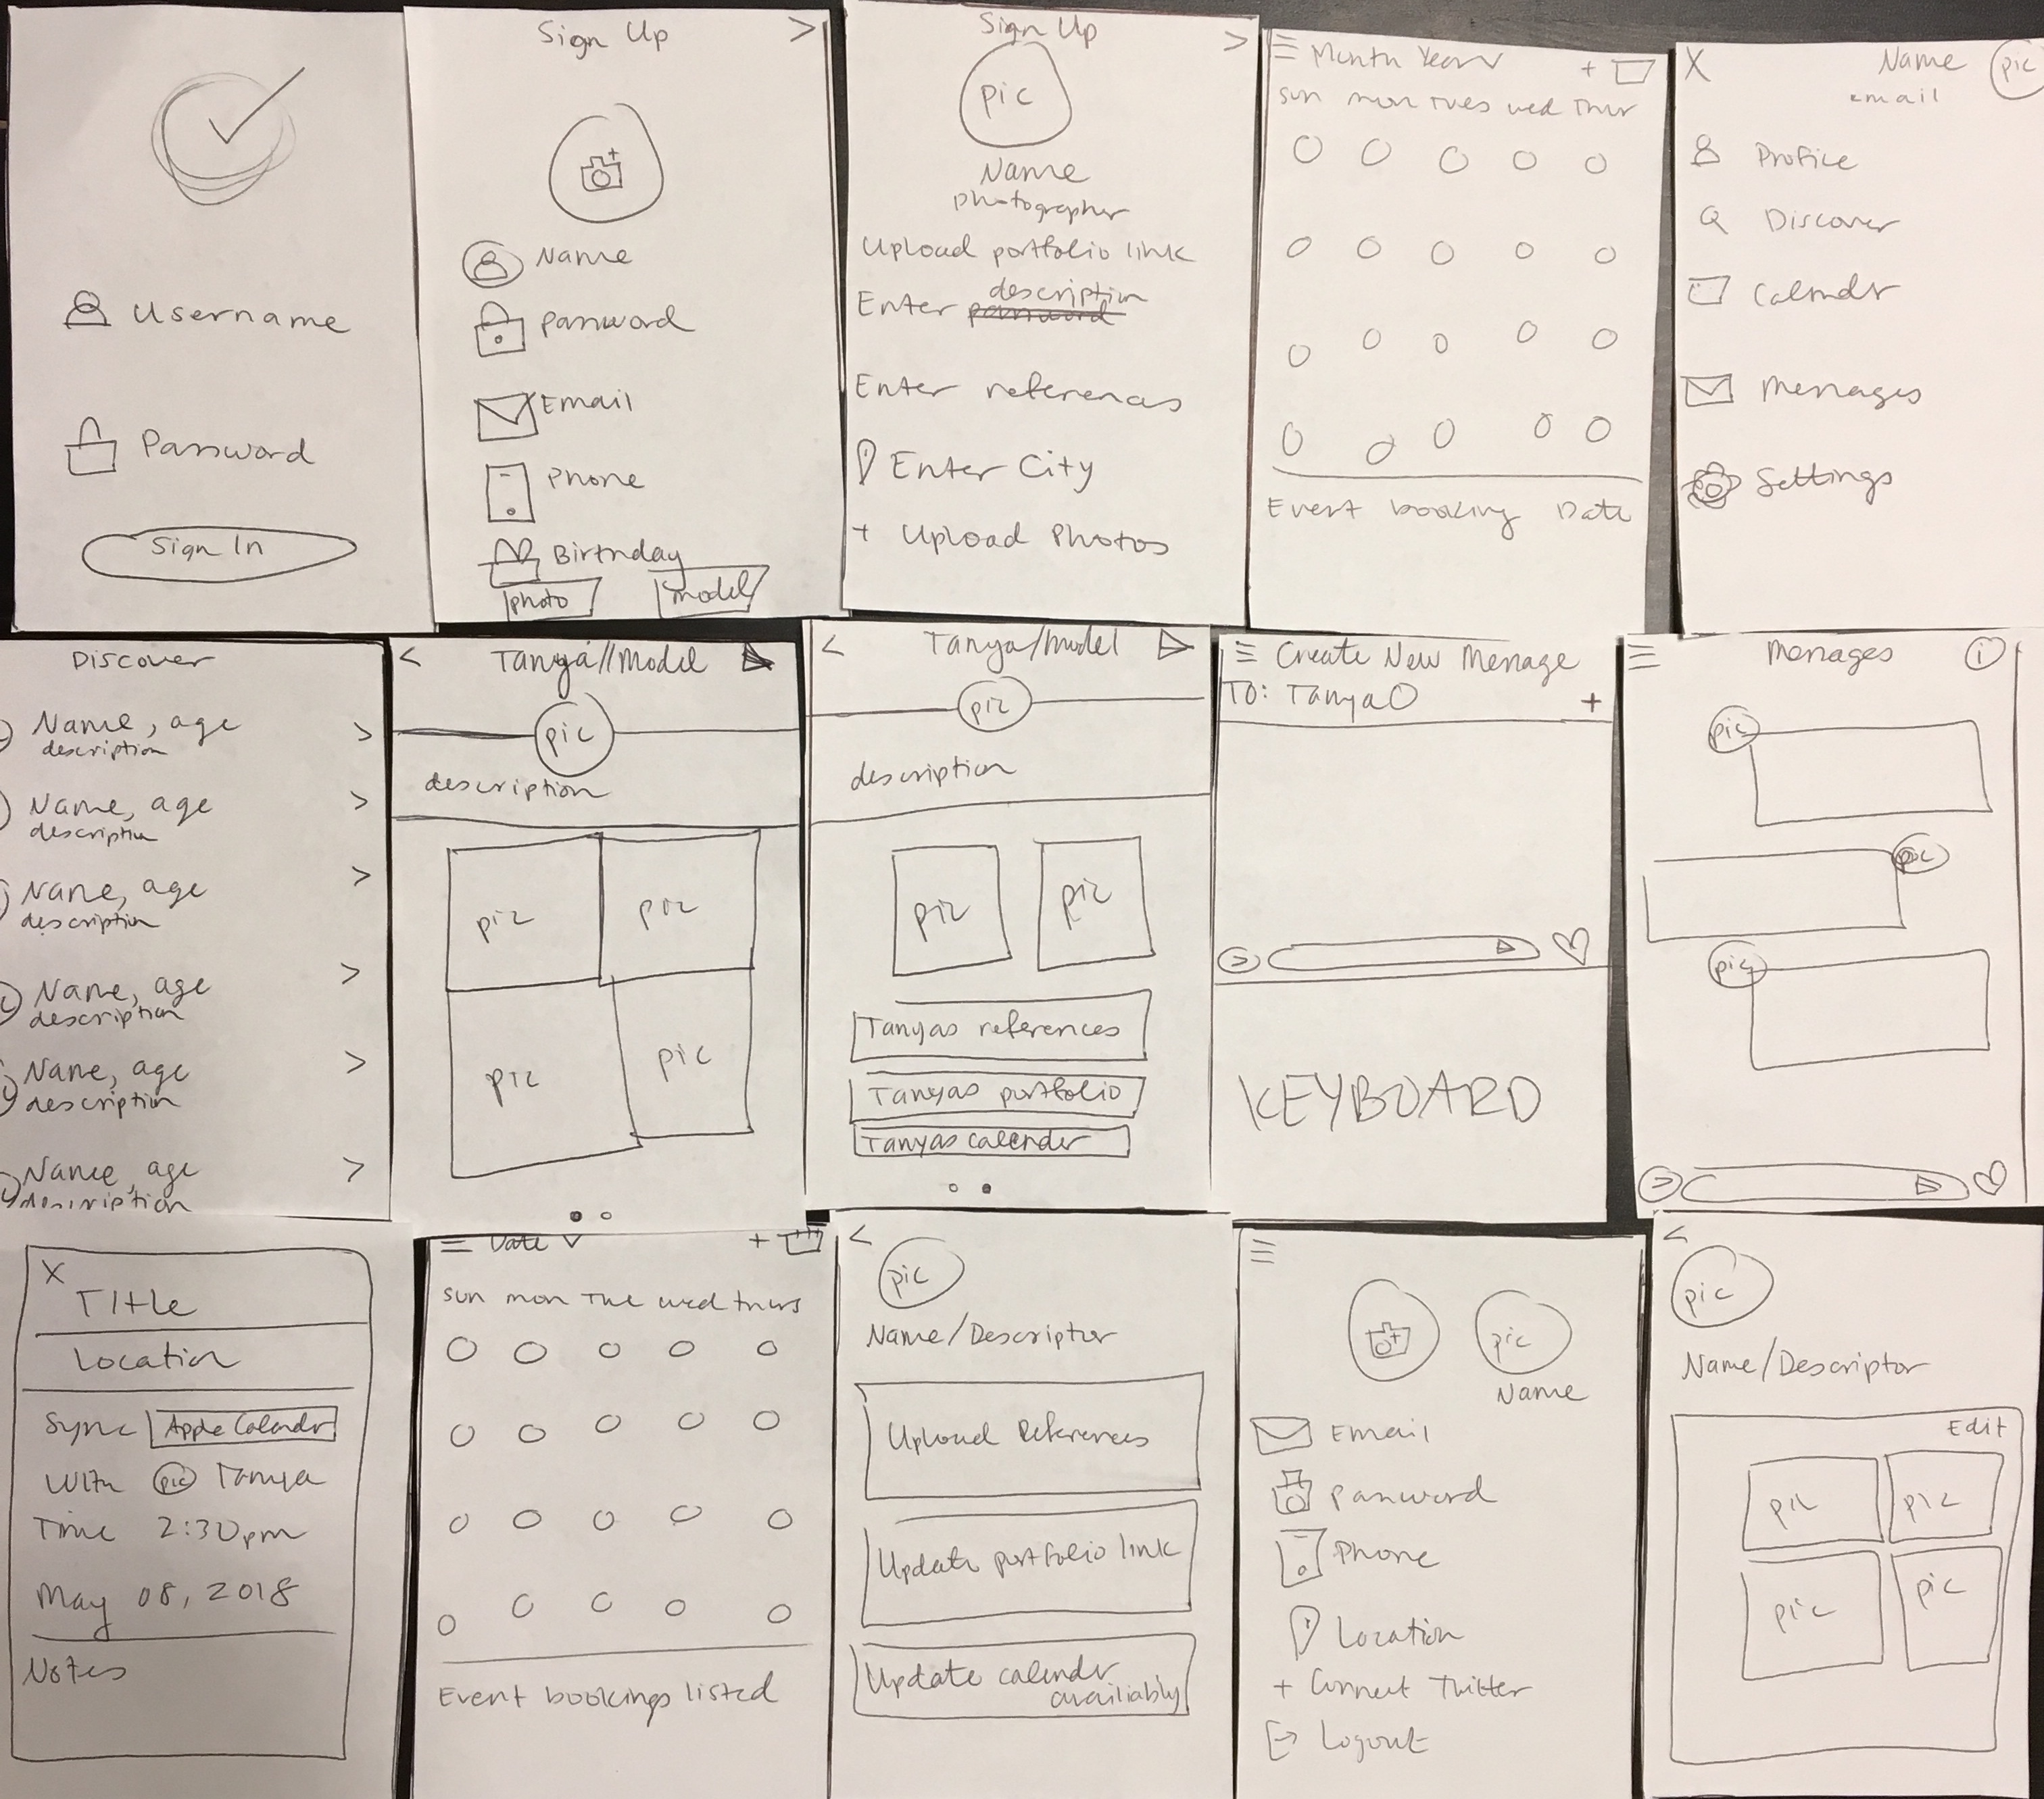 Username
Password
Sign In
Sign Up >
Name
password
Email
Phone
Birthday
photo model
Sign Up >
pic
Name
photographer
Upload portfolio link
description
Enter password
Enter references
Enter City
+ Upload Photos
Month Year +
sun mon Tues wed Thur
Event booking Date
X Name pic
email
Profice
Discover
Calendr
Messages
Settings
Discover
Name, age >
description
Name, age >
description
Name, age >
description
Name, age >
description
Name, age >
description
Name, age >
description
< Tanya//Model
pic
description
pic pic
pic pic
< Tanya/model
pic
description
pic pic
Tanyas references
Tanyas portfolio
Tanyas calender
Create New Message
To: Tanya +
>
KEYBOARD
Messages i
pic
pic
pic
>
X
Title
Location
Sync Apple Calendr
With pic Tanya
Time 2:30pm
May 08, 2018
Notes
Date +
sun mon Tue wed thurs
Event bookings listed
<
pic
Name/Descriptor
Upload References
Update portfolio link
Update calendr
availiably
pic
Name
Email
password
Phone
Location
+ Connect Twitter
Logout
<
pic
Name/Descriptor
Edit
pic pic
pic pic